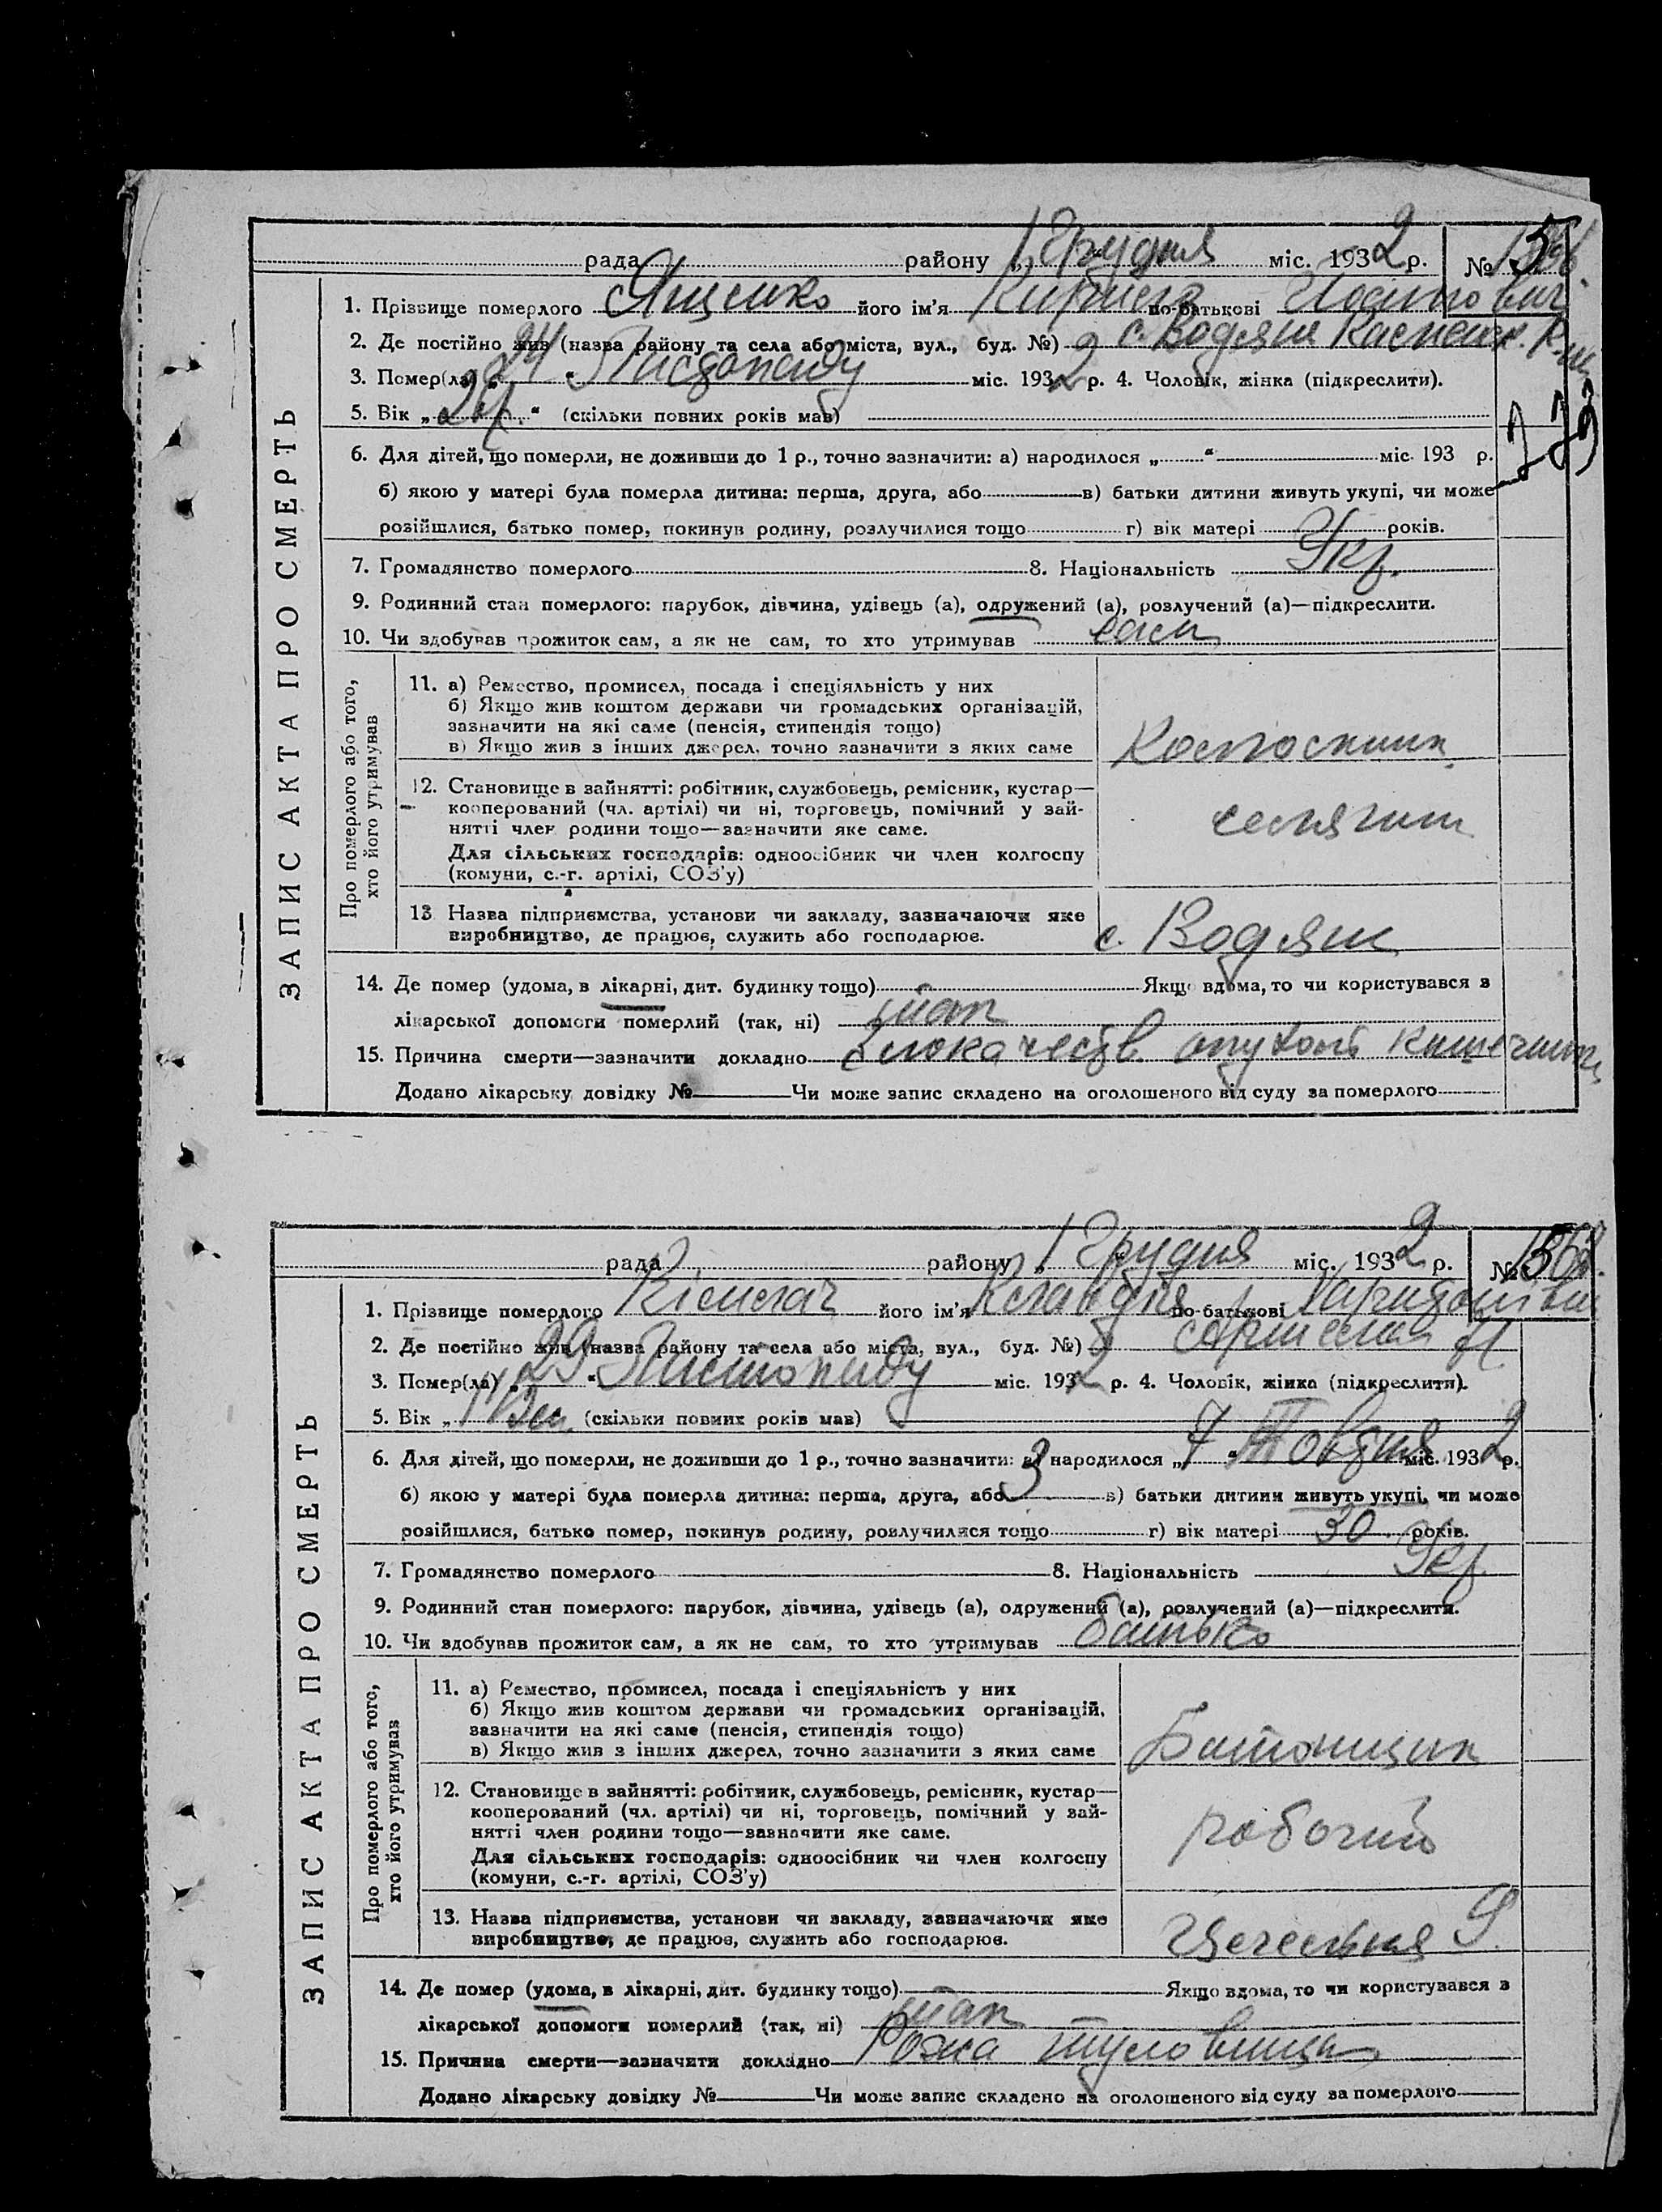 рада району „1 Грудня міс. 1932 р. №
ЗАПИС АКТА ПРО СМЕРТЬ
1. Прізвище померлого Ященко його ім'я по-батькові
2. Де постійно жив (назва району та села або міста, вул., буд. №) с. Водяне
3. Помер(ла) „24“ Листопаду міс. 1932 р. 4. Чоловік, жінка (підкреслити).
5. Вік „ “ (скільки повних років мав)
6. Для дітей, що померли, не доживши до 1 р., точно зазначити: а) народилося „ “ міс. 193 р.
б) якою у матері була померла дитина: перша, друга, або в) батьки дитини живуть укупі, чи може
розійшлися, батько помер, покинув родину, розлучилися тощо г) вік матері років.
7. Громадянство померлого 8. Національність Укр.
9. Родинний стан померлого: парубок, дівчина, удівець (а), одружений (а), розлучений (а)—підкреслити.
10. Чи здобував прожиток сам, а як не сам, то хто утримував сам
Про померлого або того,
хто його утримував
11. а) Ремество, промисел, посада і спеціяльність у них
б) Якщо жив коштом держави чи громадських організацій,
зазначити на які саме (пенсія, стипендія тощо)
в) Якщо жив з інших джерел, точно зазначити з яких саме
12. Становище в зайнятті: робітник, службовець, ремісник, кустар—
кооперований (чл. артілі) чи ні, торговець, помічний у зай-
нятті член родини тощо—зазначити яке саме.
Для сільських господарів: одноосібник чи член колгоспу
(комуни, с.-г. артілі, СОЗ'у)
селянин
13 Назва підприємства, установи чи закладу, зазначаючи яке
виробництво, де працює, служить або господарює.
с. Водяне
14. Де помер (удома, в лікарні, дит. будинку тощо) Якщо вдома, то чи користувався з
лікарської допомоги померлий (так, ні) так
15. Причина смерти—зазначити докладно злокачеств. опухоль
Додано лікарську довідку № Чи може запис складено на оголошеного від суду за померлого
рада району „1 Грудня міс. 1932 р. №
ЗАПИС АКТА ПРО СМЕРТЬ
1. Прізвище померлого його ім'я Клавдія по-батькові
2. Де постійно жив (назва району та села або міста, вул., буд. №)
3. Помер(ла) „29“ Листопаду міс. 1932 р. 4. Чоловік, жінка (підкреслити).
5. Вік „ (скільки повних років мав)
6. Для дітей, що померли, не доживши до 1 р., точно зазначити: а) народилося „7“ Жовтня міс. 1932 р.
б) якою у матері була померла дитина: перша, друга, або 3 в) батьки дитини живуть укупі, чи може
розійшлися, батько помер, покинув родину, розлучилися тощо г) вік матері 30 років.
7. Громадянство померлого 8. Національність Укр.
9. Родинний стан померлого: парубок, дівчина, удівець (а), одружений (а), розлучений (а)—підкреслити.
10. Чи здобував прожиток сам, а як не сам, то хто утримував батько
Про померлого або того,
хто його утримував
11. а) Ремество, промисел, посада і спеціяльність у них
б) Якщо жив коштом держави чи громадських організацій,
зазначити на які саме (пенсія, стипендія тощо)
в) Якщо жив з інших джерел, точно зазначити з яких саме
12. Становище в зайнятті: робітник, службовець, ремісник, кустар—
кооперований (чл. артілі) чи ні, торговець, помічний у зай-
нятті член родини тощо—зазначити яке саме.
Для сільських господарів: одноосібник чи член колгоспу
(комуни, с.-г. артілі, СОЗ'у)
робочий
13. Назва підприємства, установи чи закладу, зазначаючи яке
виробництво, де працює, служить або господарює.
14. Де помер (удома, в лікарні, дит. будинку тощо) Якщо вдома, то чи користувався з
лікарської допомоги померлий (так, ні) так
15. Причина смерти—зазначити докладно Рожа туловища
Додано лікарську довідку № Чи може запис складено на оголошеного від суду за померлого